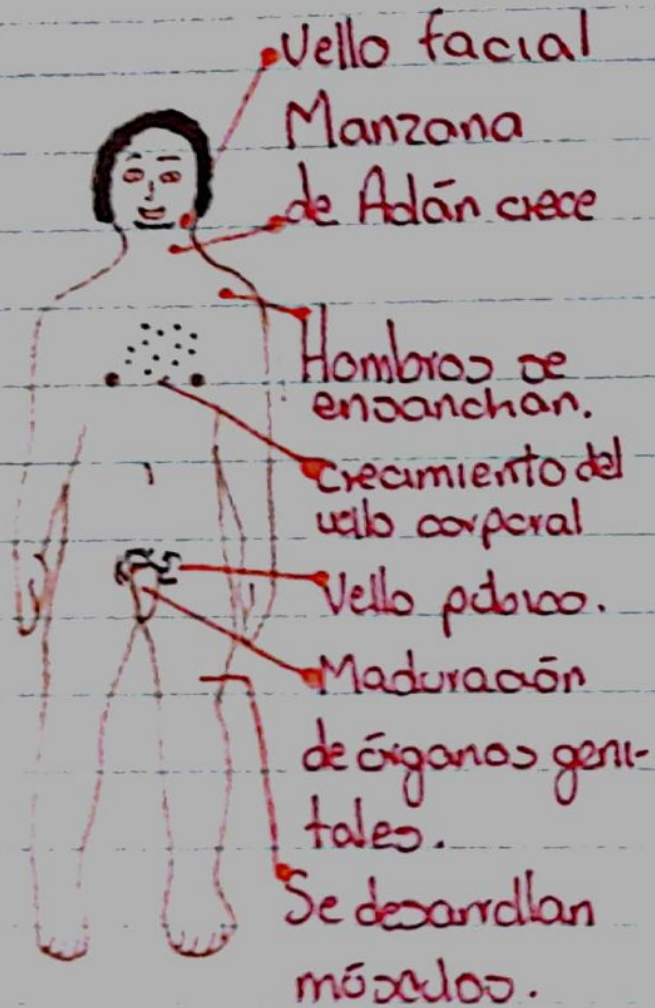 Vello facial
Manzana
de Adán crece
Hombros se
ensanchan.
crecimiento del
vello corporal
Vello púbico.
Maduración
de órganos geni-
tales.
Se desarrollan
músculos.